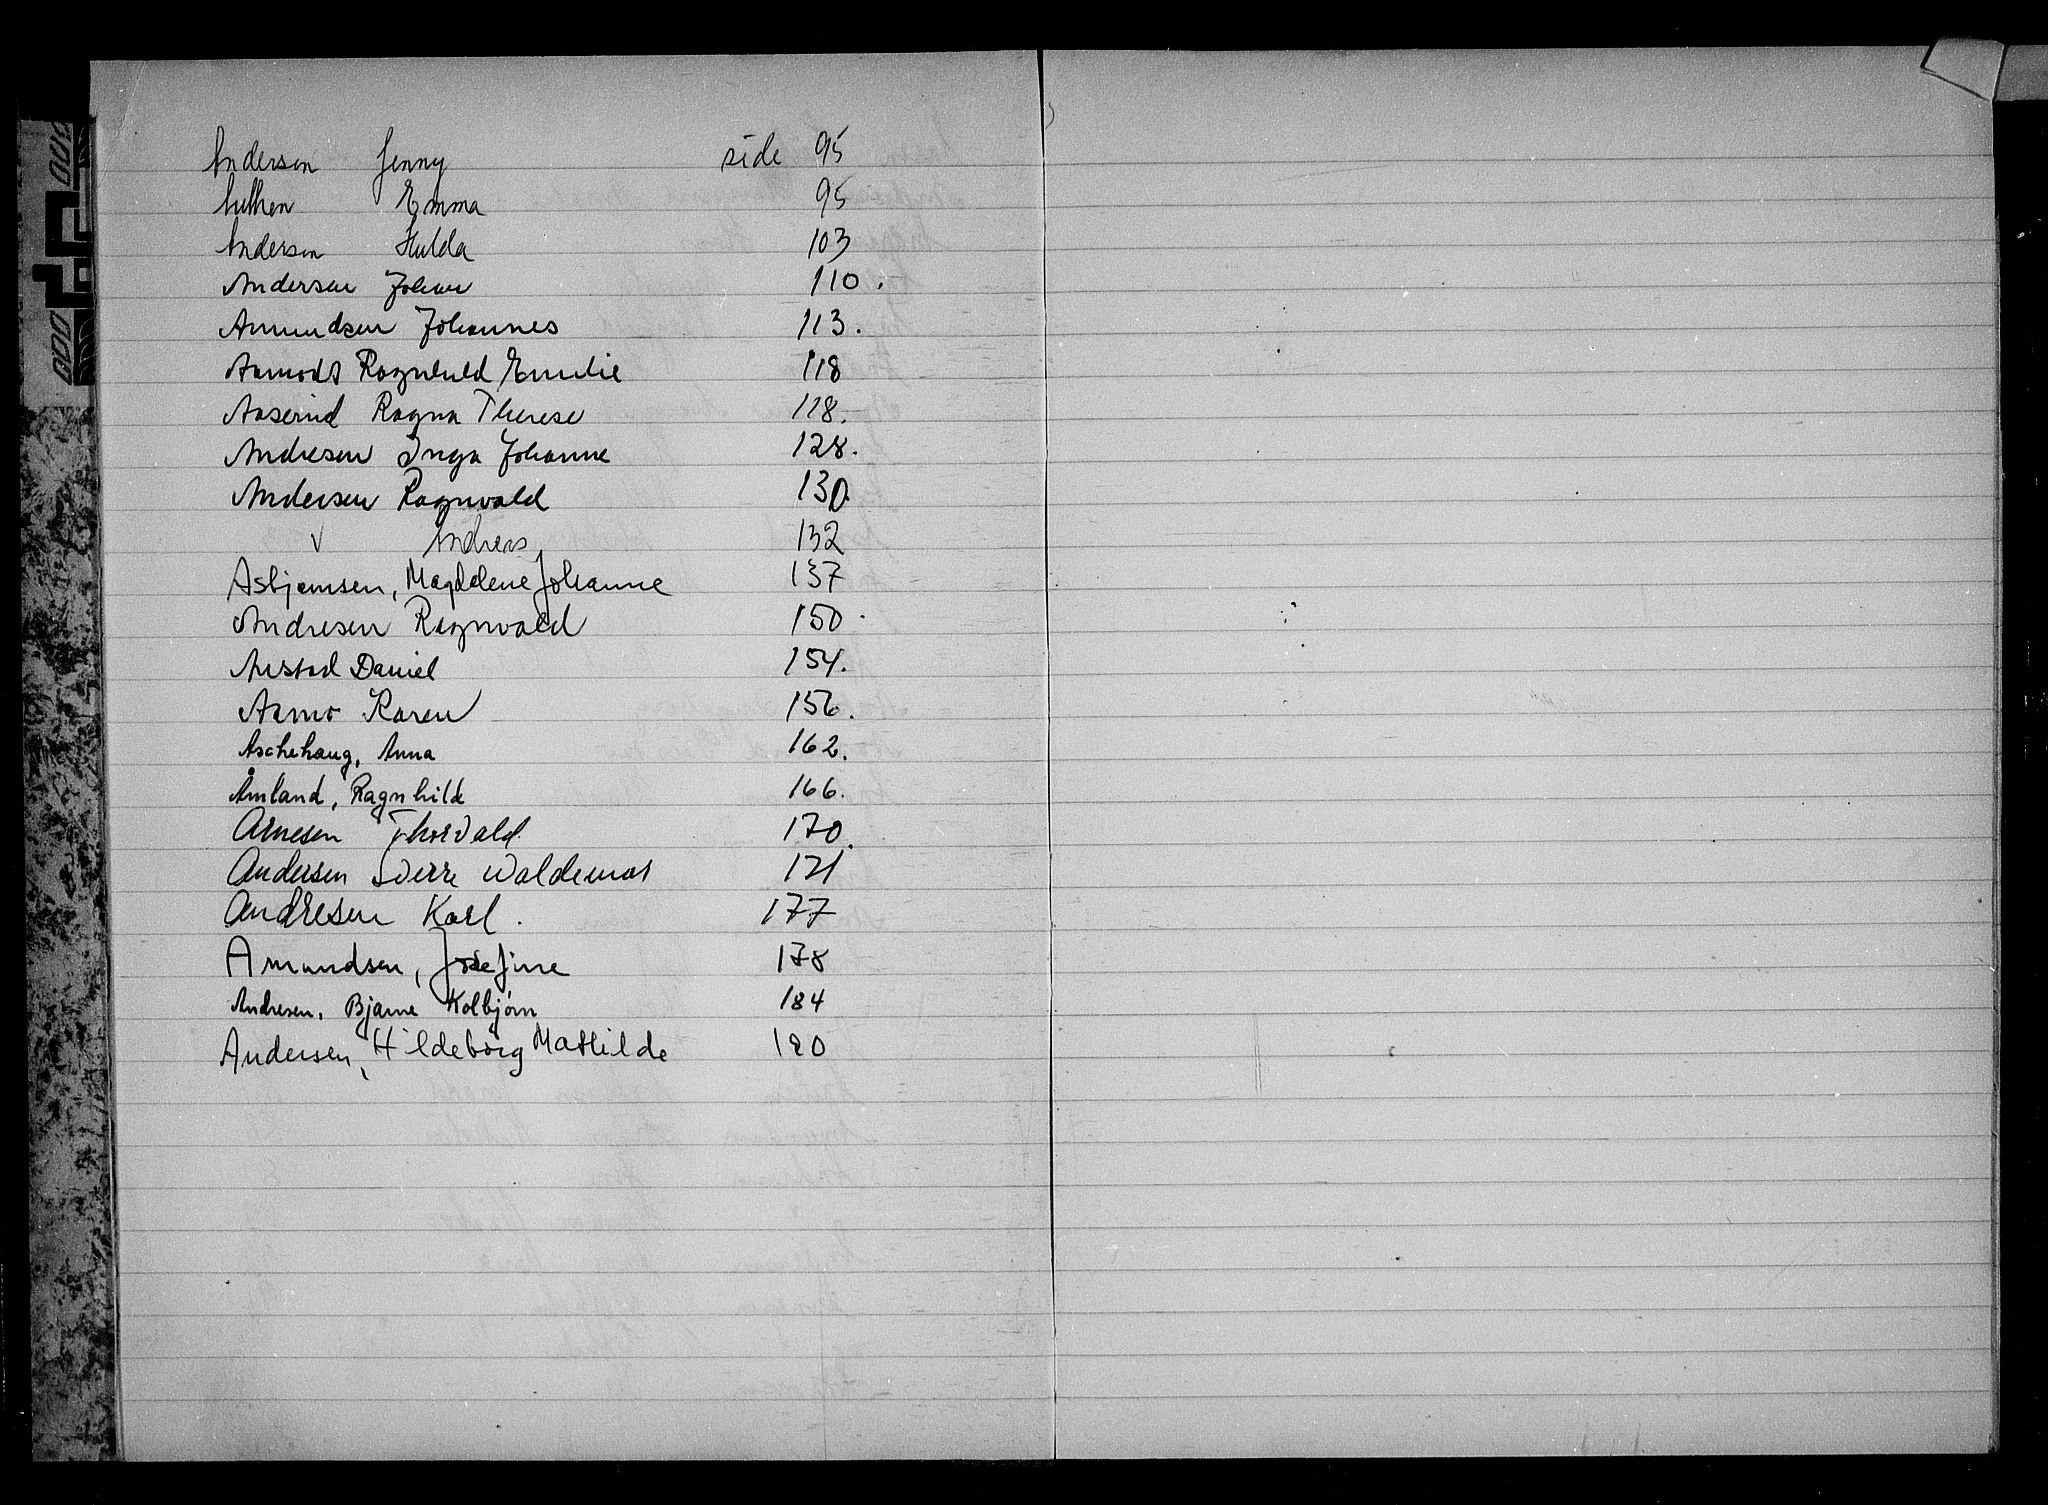 Anderson Jenny side 95
Authen Emma 95
Anderson Hulda 103
Andersen Johan 110.
Amundsen Johannes 113.
Aamodt Ragnhild Emilie 118
Aaserud Ragna Therese 118.
Andresen Inga Johanne 128.
Andersen Ragnvald 130.
v Andreas 132
Asbjørnsen, Magdalene Johanne 137
Andresen Ragnvald 150.
Aastad Daniel 154.
Aamo Karen 156.
Aschehaug, Anna 162.
Åmland, Ragnhild 166.
Arnesen Thorvald. 170.
Andersen Sverre Waldemar 171
Andresen Karl. 177
Amundsen, Josefine 178
Andresen, Bjarne Kolbjørn 184
Andersen, Hildeborg Mathilde 190